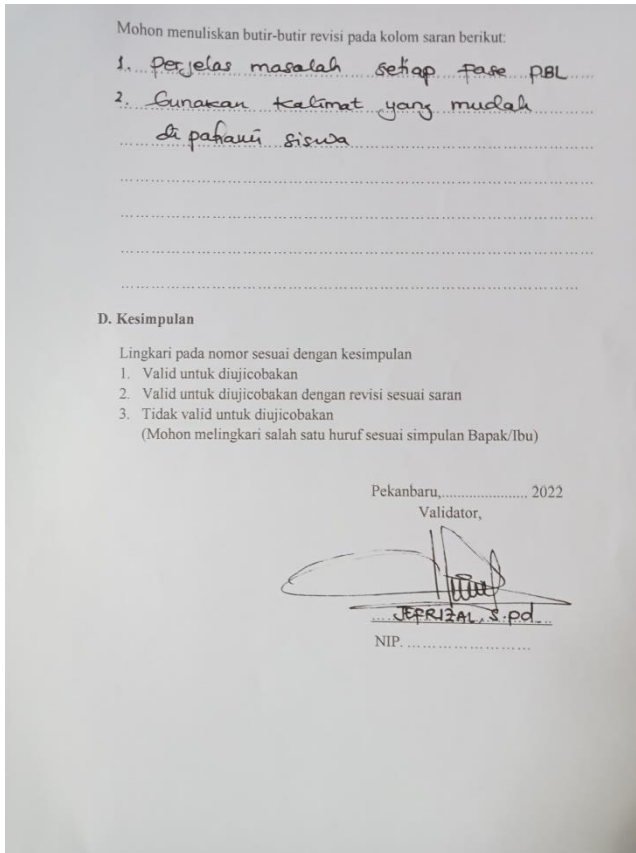 Mohon menuliskan butir-butir revisi pada kolom saran berikut:
1. Perjelas masalah setiap fase PBL
2. Gunakan kalimat yang mudah
di pahami siswa
D. Kesimpulan
Lingkari pada nomor sesuai dengan kesimpulan
1. Valid untuk diujicobakan
2. Valid untuk diujicobakan dengan revisi sesuai saran
3. Tidak valid untuk diujicobakan
(Mohon melingkari salah satu huruf sesuai simpulan Bapak/Ibu)
Pekanbaru,....................... 2022
Validator,
JEFRIZAL, S.Pd
NIP. ........................